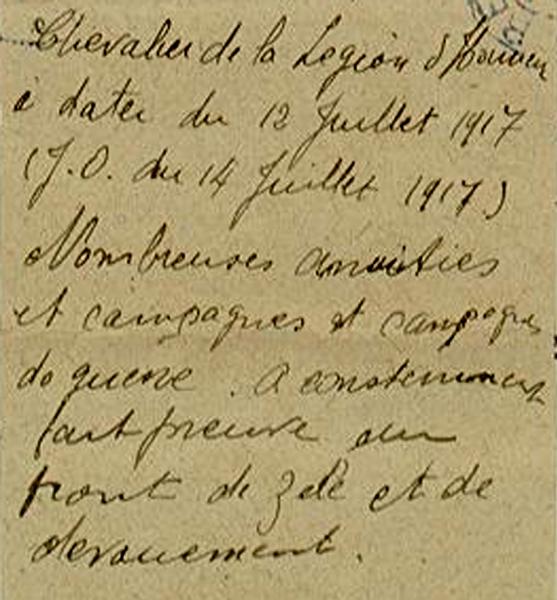 Chevalier de la Legion d'Honneur
à dater du 12 Juillet 1917
(J.O. du 14 Juillet 1917)
Nombreuses annuities
et campagnes et campagnes
de guerre. A constemment
fait preuve au
front de zele et de
devouement.